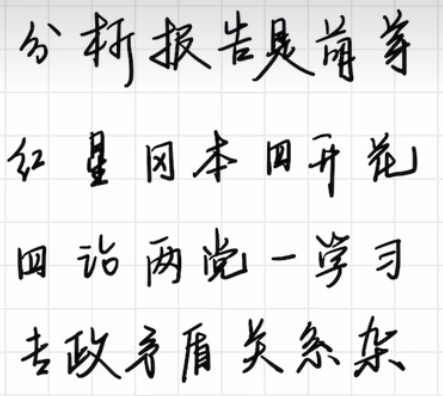 分析报告是萌芽
红星冈本四开花
四 两党一学习
去政矛盾关系杂